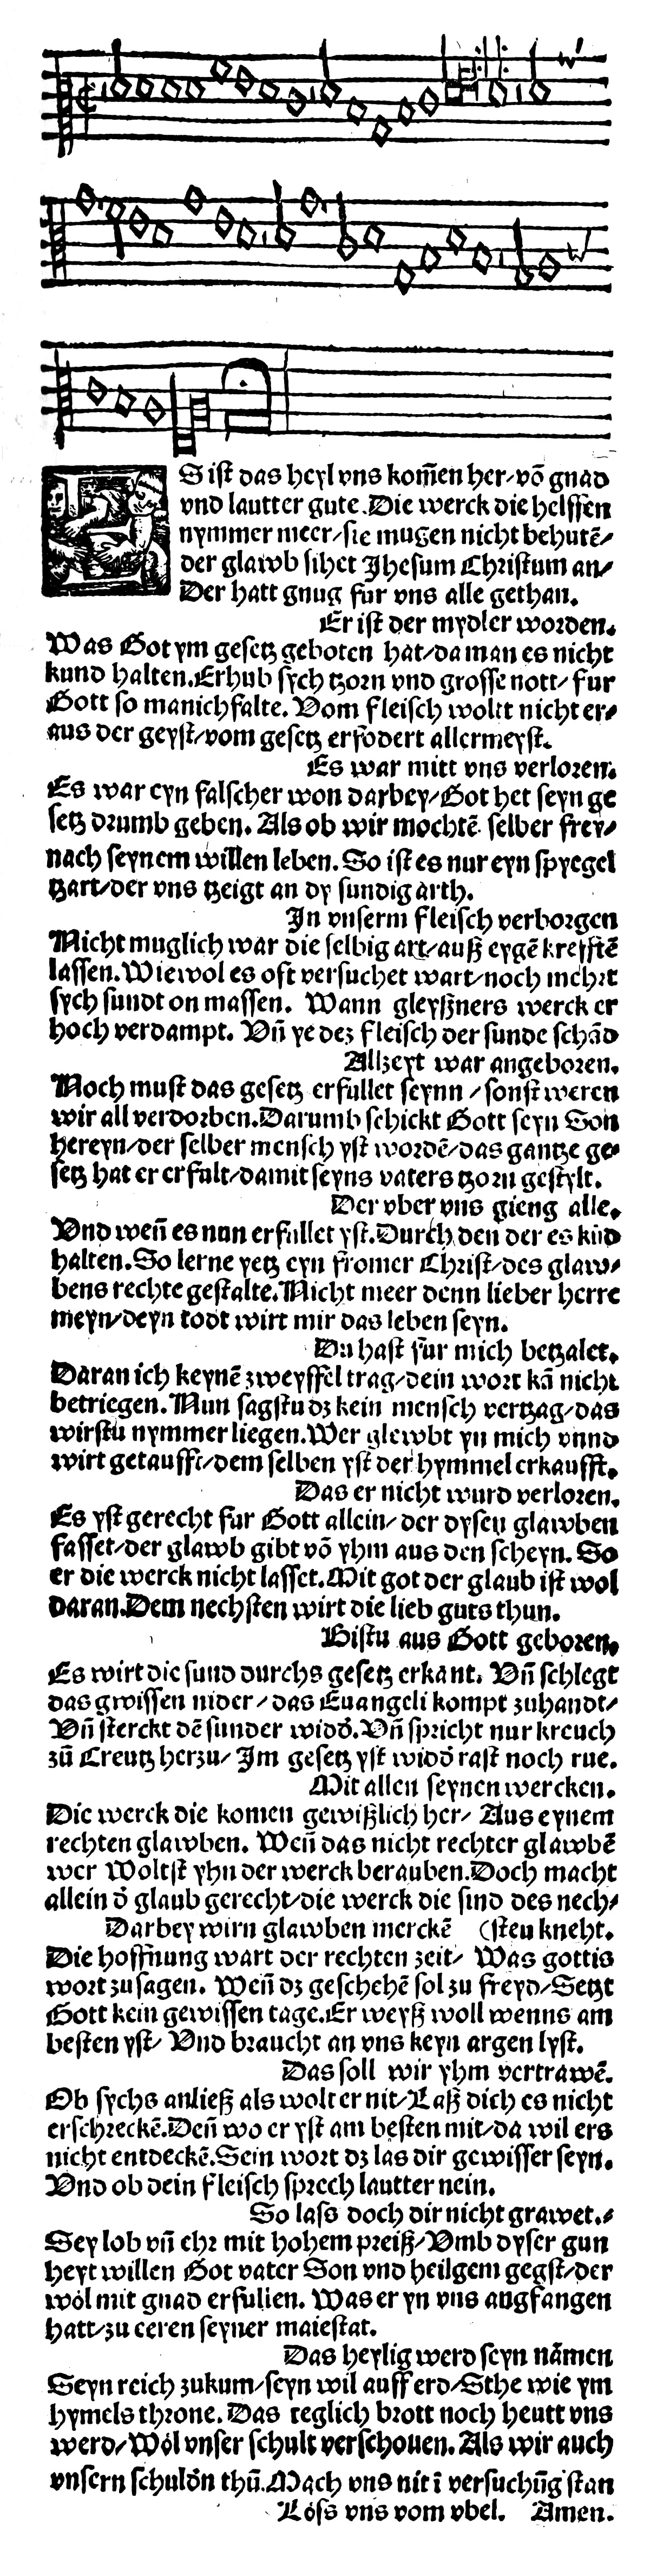 ES ist das heyl vns kom̃en her/võ gnad
vnd lautter gute. Die werck die helffen
nymmer meer/sie mugen nicht behutē/
der glawb sihet Jhesum Christum an/
Der hatt gnug fur vns alle gethan.
Er ist der mydler worden.
Was Got ym gesetz geboten hat/da man es nicht
kund halten. Erhub sych tzorn vnd grosse nott/ fur
Gott so manichfalte. Vom fleisch wolt nicht er/
aus der geyst/vom gesetz erfodert allermeyst.
Es war mitt vns verloren.
Es war eyn falscher won darbey/Got het seyn ge
setz drumb geben. Als ob wir mochtē selber frey/
nach seynem willen leben. So ist es nur eyn spyegel
tzart/der vns tzeigt an dy sundig arth.
In vnserm fleisch verborgen
Nicht muglich war die selbig art/auß eygē krefftē
lassen. Wiewol es oft versuchet wart/noch mehrt
sych sundt on massen. Wann gleyßners werck er
hoch verdampt. Vñ ye dez fleisch der sunde schād
Allzeyt war angeboren.
Noch must das gesetz erfullet seynn/sonst weren
wir all verdorben. Darumb schickt Gott seyn Son
hereyn/der selber mensch yst wordē/das gantze ge-
setz hat er erfult/damit seyns vaters tzorn gestylt.
Der vber vns gieng alle.
Vnd weñ es nun erfullet yst. Durch den der es kūd
halten. So lerne yetz eyn fromer Christ/des glaw/
bens rechte gestalte. Nicht meer denn lieber herre
meyn/deyn todt wirt mir das leben seyn.
Du hast fur mich betzalet.
Daran ich keynē zweyffel trag/dein wort kā nicht
betriegen. Nun sagstu dz kein mensch vertzag/das
wirstu nymmer liegen. Wer glewbt yn mich vnnd
wirt getaufft/dem selben yst der hymmel erkaufft.
Das er nicht wurd verloren.
Es yst gerecht fur Gott allein/der dysen glawben
fasset/der glawb gibt võ yhm aus den scheyn. So
er die werck nicht lasset. Mit got der glaub ist wol
daran. Dem nechsten wirt die lieb guts thun.
Bistu aus Gott geboren.
Es wirt die sund durchs gesetz erkant. Vñ schlegt
das gwissen nider/das Euangeli kompt zuhandt/
Vñ sterckt dē sunder widd'. Vñ spricht nur kreuch
zū Creutz herzu/ Im gesetz yst widd' rast noch rue.
Mit allen seynen wercken.
Die werck die komen gewißlich her/ Aus eynem
rechten glawben. Weñ das nicht rechter glawbē
wer Woltst yhn der werck berauben. Doch macht
allein d' glaub gerecht/die werck die sind des nech/
Darbey wirn glawben merckē (sten kneht.
Die hoffnung wart der rechten zeit/ Was gottis
wort zu sagen. Weñ dz geschehē sol zu freyd/Setzt
Gott kein gewissen tage. Er weyß woll wenns am
besten yst/ Vnd braucht an vns keyn argen lyst.
Das soll wir yhm vertrawē.
Ob sychs anließ als wolt er nit/Laß dich es nicht
erschreckē. Deñ wo er yst am besten mit/da wil ers
nicht entdeckē. Sein wort dz las dir gewisser seyn.
Vnd ob dein fleisch sprech lautter nein.
So lass doch dir nicht grawet./
Sey lob vñ ehr mit hohem preiß/Vmb dyser gun
heyt willen Got vater Son vnd heilgem gegst/der
wol mit gnad erfullen. Was er yn vns angfangen
hatt/zu eeren seyner maiestat.
Das heylig werd seyn nāmen
Seyn reich zukum/seyn wil auff erd/Sthe wie ym
hymels throne. Das teglich brott noch heutt vns
werd/Wol vnser schult verschonen. Als wir auch
vnsern schuldn thū. Mach vns nit ī versuchūg stan
Löss vns vom vbel. Amen.